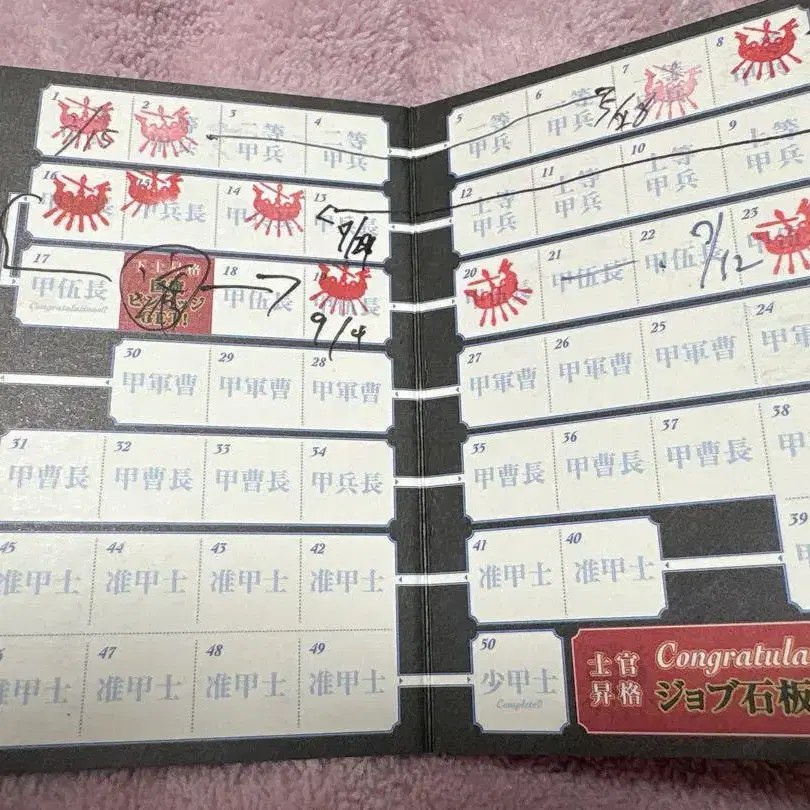 1 2 3 4
7/15 等 二等 二等
甲兵 甲兵
16 15 14 13
甲兵長 甲 兵長
7/29
17 18 19
甲伍長 済 甲伍長
Congratulations!!
下士昇格
GET!
9/4
30 29 28
甲軍曹 甲軍曹 甲軍曹
31 32 33 34
甲曹長 甲曹長 甲曹長 甲兵長
45 44 43 42
准甲士 准甲士 准甲士 准甲士
47 48 49
准甲士 准甲士 准甲士 准甲士
5 6 7 8
一等 一等 一等
甲兵 甲兵
5/28
12 11 10 9
上等 上等 上等 上等
甲兵 甲兵 甲兵 甲兵
20 21 22 23
甲伍長 甲伍長
9/12
27 26 25 24
甲軍曹 甲軍曹 甲軍曹 甲軍
35 36 37 38
甲曹長 甲曹長 甲曹長 甲
41 40 39
准甲士 准甲士
50
少甲士
Complete!!
士官昇格
Congratula
ジョブ石板